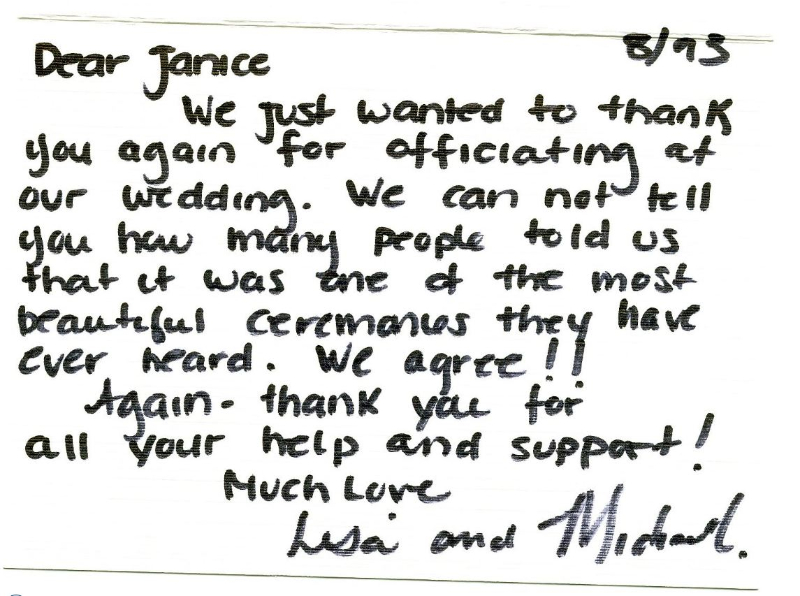 8/93
Dear Janice
We just wanted to thank
you again for officiating at
our wedding. We can not tell
you how many people told us
that it was one of the most
beautiful ceremonies they have
ever heard. We agree!!
Again- thank you for
all your help and support!
Much Love
Lisa and Michael.